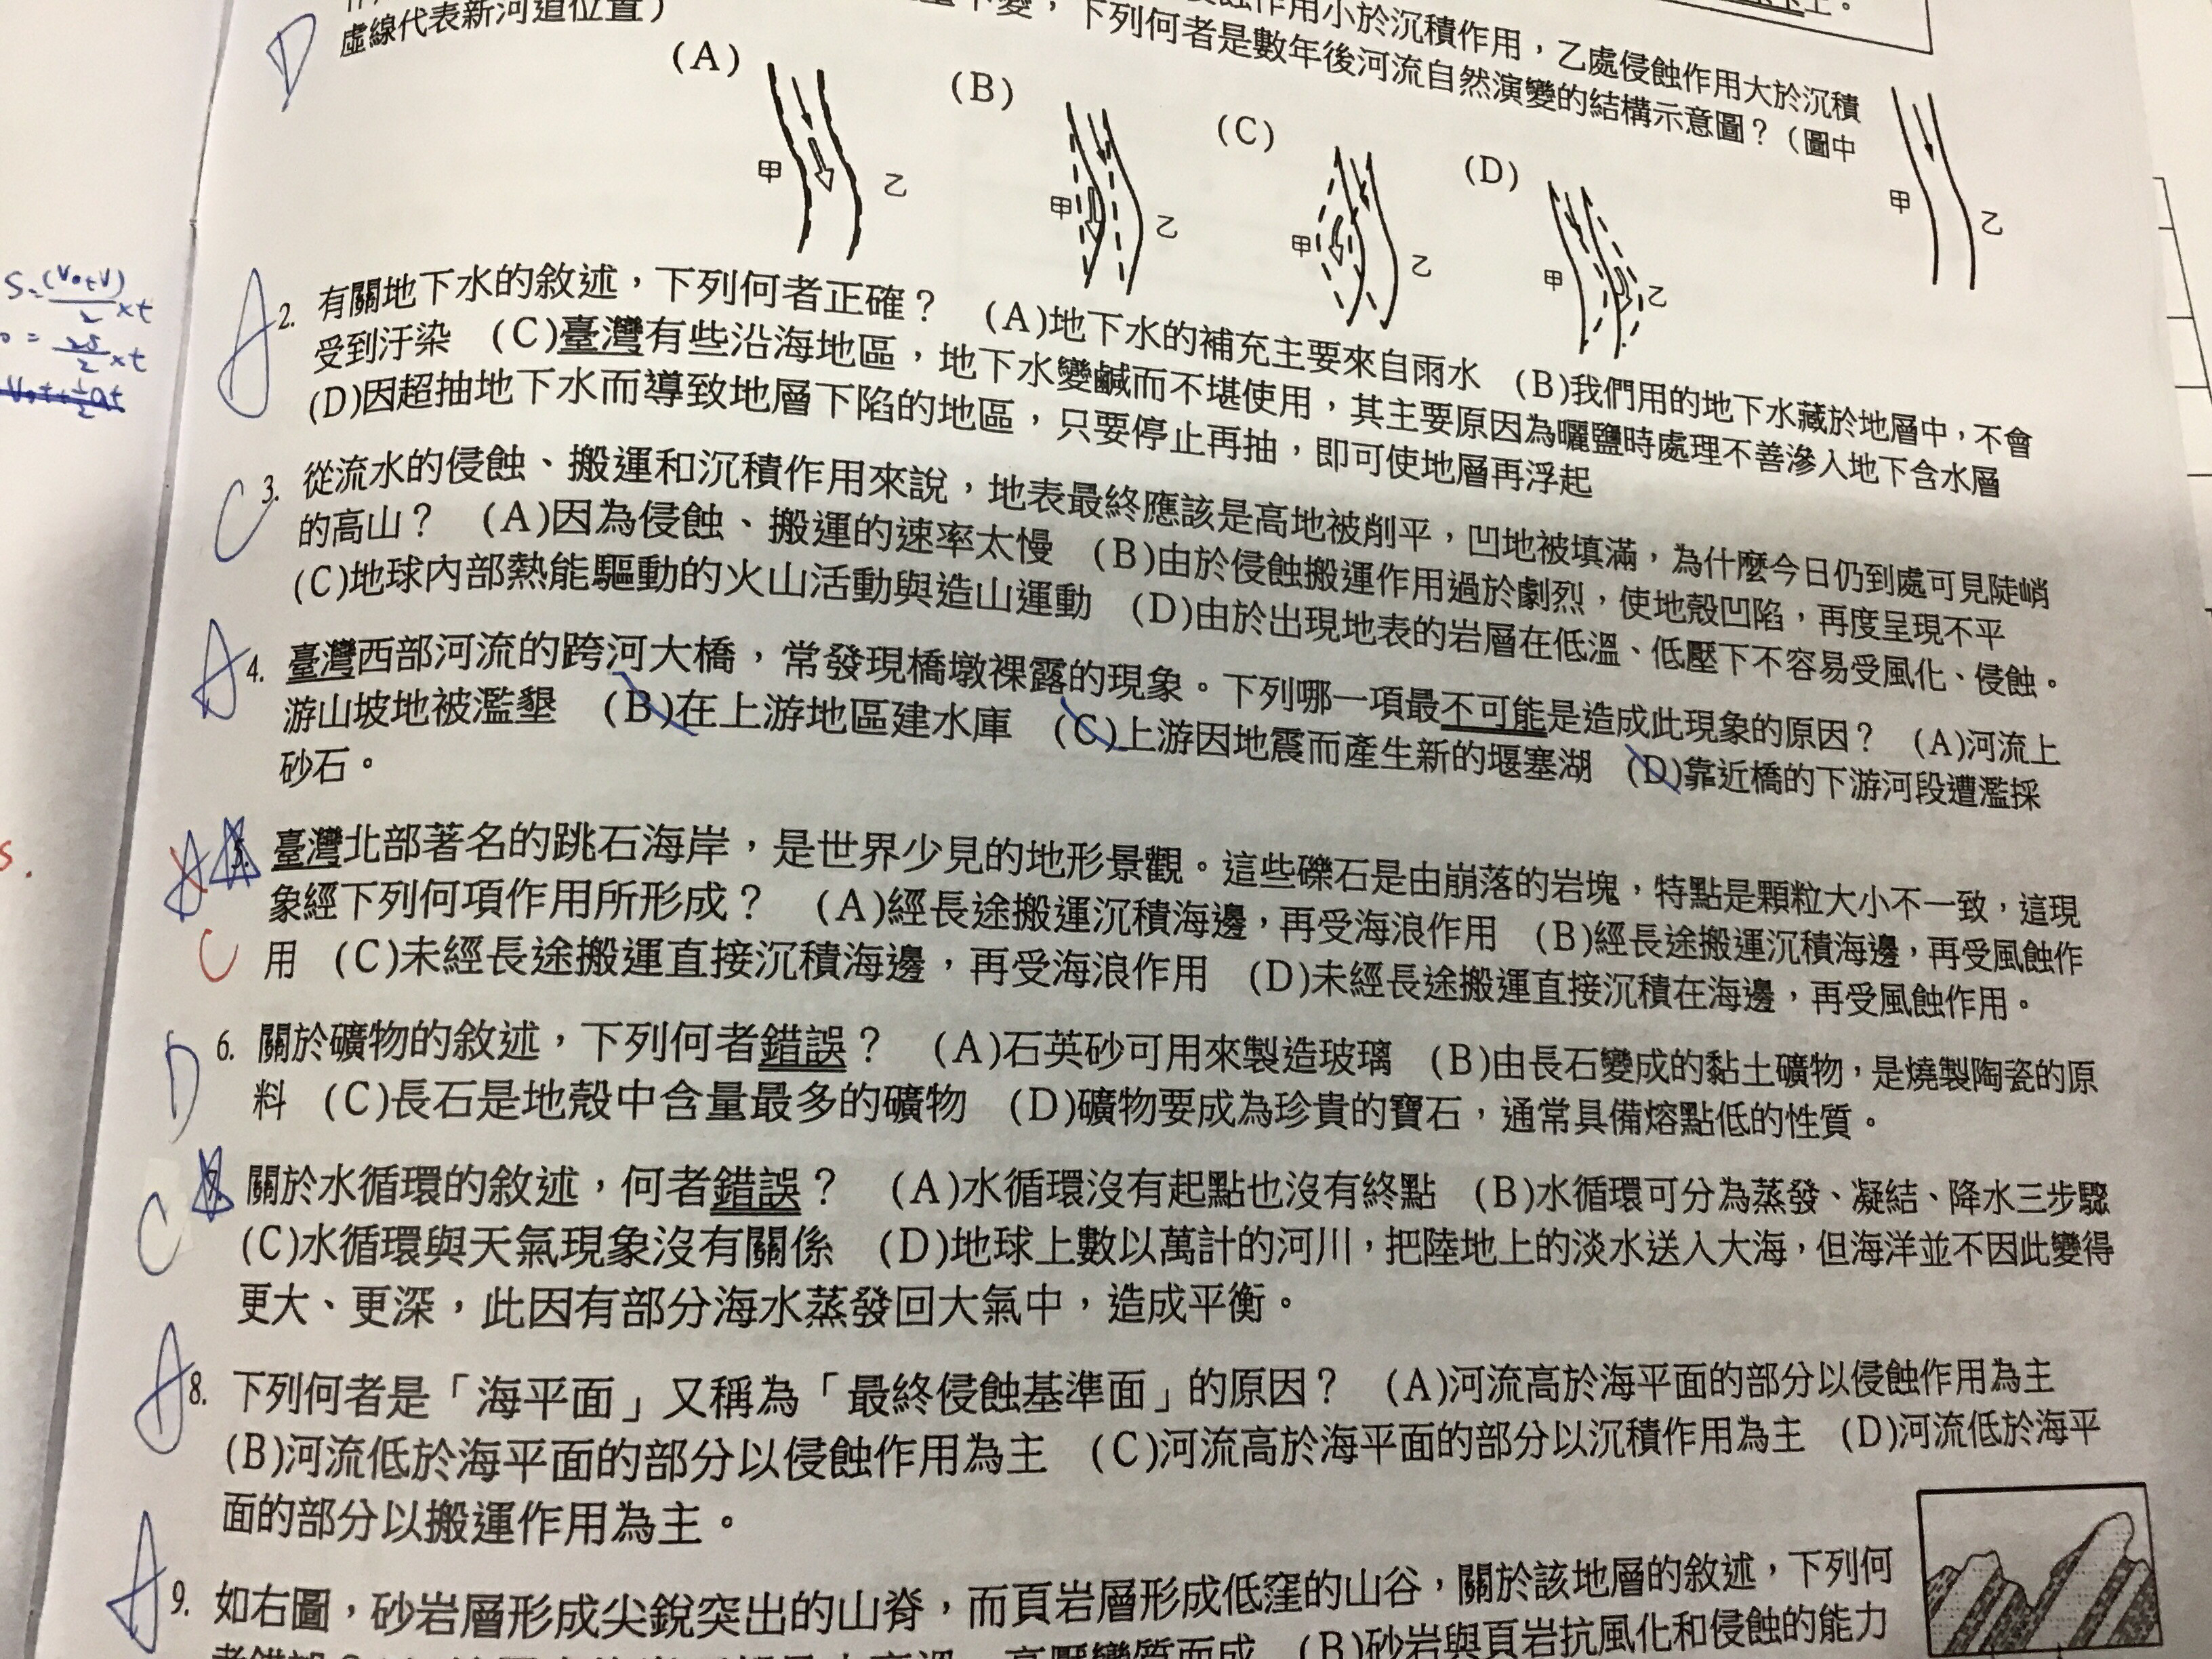 蝕作用小於沉積作用，乙處侵蝕作用大於沉積
不變，下列何者是數年後河流自然演變的結構示意圖？（圖中
虛線代表新河道位置）
D
(A) (B) (C) (D)
甲 乙 甲 乙 甲 乙 甲 乙 甲 乙
S= (V0+V)/2 ×t
= 25/2 ×t
V0t+1/2at
A 2. 有關地下水的敘述，下列何者正確？ (A)地下水的補充主要來自雨水 (B)我們用的地下水藏於地層中，不會
受到汙染 (C)臺灣有些沿海地區，地下水變鹹而不堪使用，其主要原因為曬鹽時處理不善滲入地下含水層
(D)因超抽地下水而導致地層下陷的地區，只要停止再抽，即可使地層再浮起
C 3. 從流水的侵蝕、搬運和沉積作用來說，地表最終應該是高地被削平，凹地被填滿，為什麼今日仍到處可見陡峭
的高山？ (A)因為侵蝕、搬運的速率太慢 (B)由於侵蝕搬運作用過於劇烈，使地殼凹陷，再度呈現不平
(C)地球內部熱能驅動的火山活動與造山運動 (D)由於出現地表的岩層在低溫、低壓下不容易受風化、侵蝕。
A 4. 臺灣西部河流的跨河大橋，常發現橋墩裸露的現象。下列哪一項最不可能是造成此現象的原因？ (A)河流上
游山坡地被濫墾 (B)在上游地區建水庫 (C)上游因地震而產生新的堰塞湖 (D)靠近橋的下游河段遭濫採
砂石。
s.
A 5. 臺灣北部著名的跳石海岸，是世界少見的地形景觀。這些礫石是由崩落的岩塊，特點是顆粒大小不一致，這現
象經下列何項作用所形成？ (A)經長途搬運沉積海邊，再受海浪作用 (B)經長途搬運沉積海邊，再受風蝕作
C 用 (C)未經長途搬運直接沉積海邊，再受海浪作用 (D)未經長途搬運直接沉積在海邊，再受風蝕作用。
D 6. 關於礦物的敘述，下列何者錯誤？ (A)石英砂可用來製造玻璃 (B)由長石變成的黏土礦物，是燒製陶瓷的原
料 (C)長石是地殼中含量最多的礦物 (D)礦物要成為珍貴的寶石，通常具備熔點低的性質。
C 關於水循環的敘述，何者錯誤？ (A)水循環沒有起點也沒有終點 (B)水循環可分為蒸發、凝結、降水三步驟
(C)水循環與天氣現象沒有關係 (D)地球上數以萬計的河川，把陸地上的淡水送入大海，但海洋並不因此變得
更大、更深，此因有部分海水蒸發回大氣中，造成平衡。
A 8. 下列何者是「海平面」又稱為「最終侵蝕基準面」的原因？ (A)河流高於海平面的部分以侵蝕作用為主
(B)河流低於海平面的部分以侵蝕作用為主 (C)河流高於海平面的部分以沉積作用為主 (D)河流低於海平
面的部分以搬運作用為主。
A 9. 如右圖，砂岩層形成尖銳突出的山脊，而頁岩層形成低窪的山谷，關於該地層的敘述，下列何
高壓變質而成 (B)砂岩與頁岩抗風化和侵蝕的能力